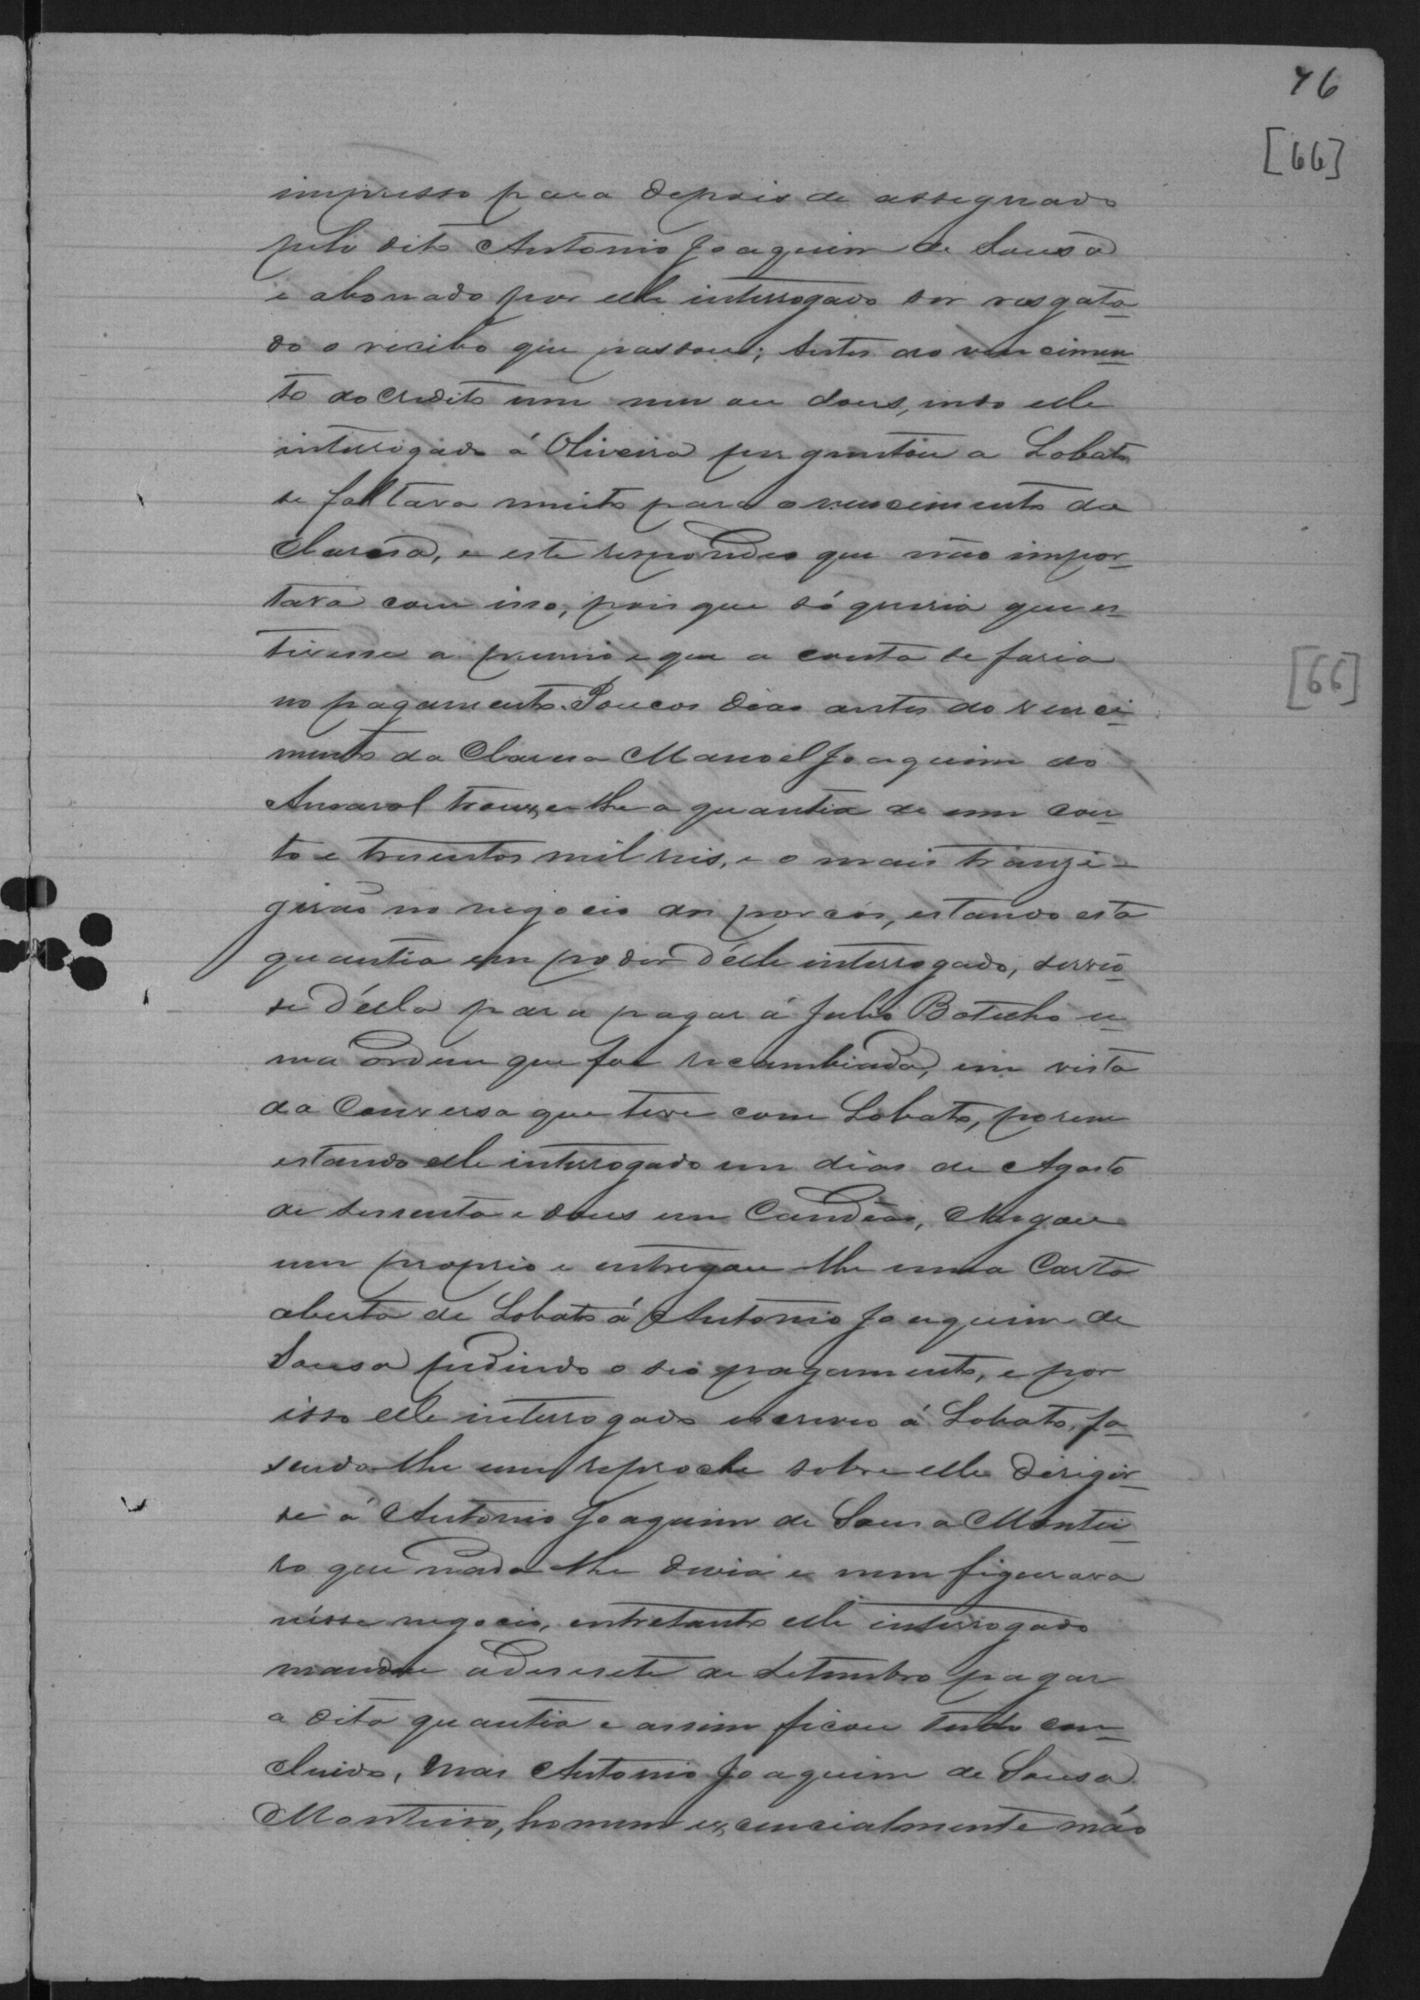 76
[66]
impresso para depois de assegnado
pelo dito Antonio Joaquim de Sousa
e abonado por elle interrogado ser resgata-
do o recibo que passou; Antes do vencimen-
to do credito um mez ou dous, indo elle
interrogado á Oliveira perguntou a Lobato
se faltava muito para o vencimento da
claresa, e este respondeo que não impor-
tava com isso, pois que só queria que es-
tivesse a premio e que a conta se faria
no pagamento. Poucos dias antes do venci-
mento da claresa Manoel Joaquim do
Amaral trouxe-lhe a quantia de um con-
to e tresentos mil reis, e o mais tranzi-
girão no negocio dos porcos, estando esta
quantia em poder d'elle interrogado, servio-
se d'ella para pagar á Julio Botelho u-
ma ordem que foi recambiada, em vista
da conversa que teve com Lobato, porem
estando elle interrogado em dias de Agosto
de sessenta e dous em Candêas, chegou
um proprio e entregou-lhe uma Carta
aberta de Lobato á Antonio Joaquim de
Sousa pedindo o seo pagamento, e por
isso elle interrogado escreveo á Lobato, fa-
sendo-lhe um reproche sobre elle dirigir-
se á Antonio Joaquim de Sousa Montei-
ro que nada lhe devia e nem figurava
nesse negocio, entretanto elle interrogado
mandou a desesete de Setembro pagar
a dita quantia e assim ficou tudo con-
cluido, mas Antonio Joaquim de Sousa
Monteiro, homem excencialmente máo
[66]